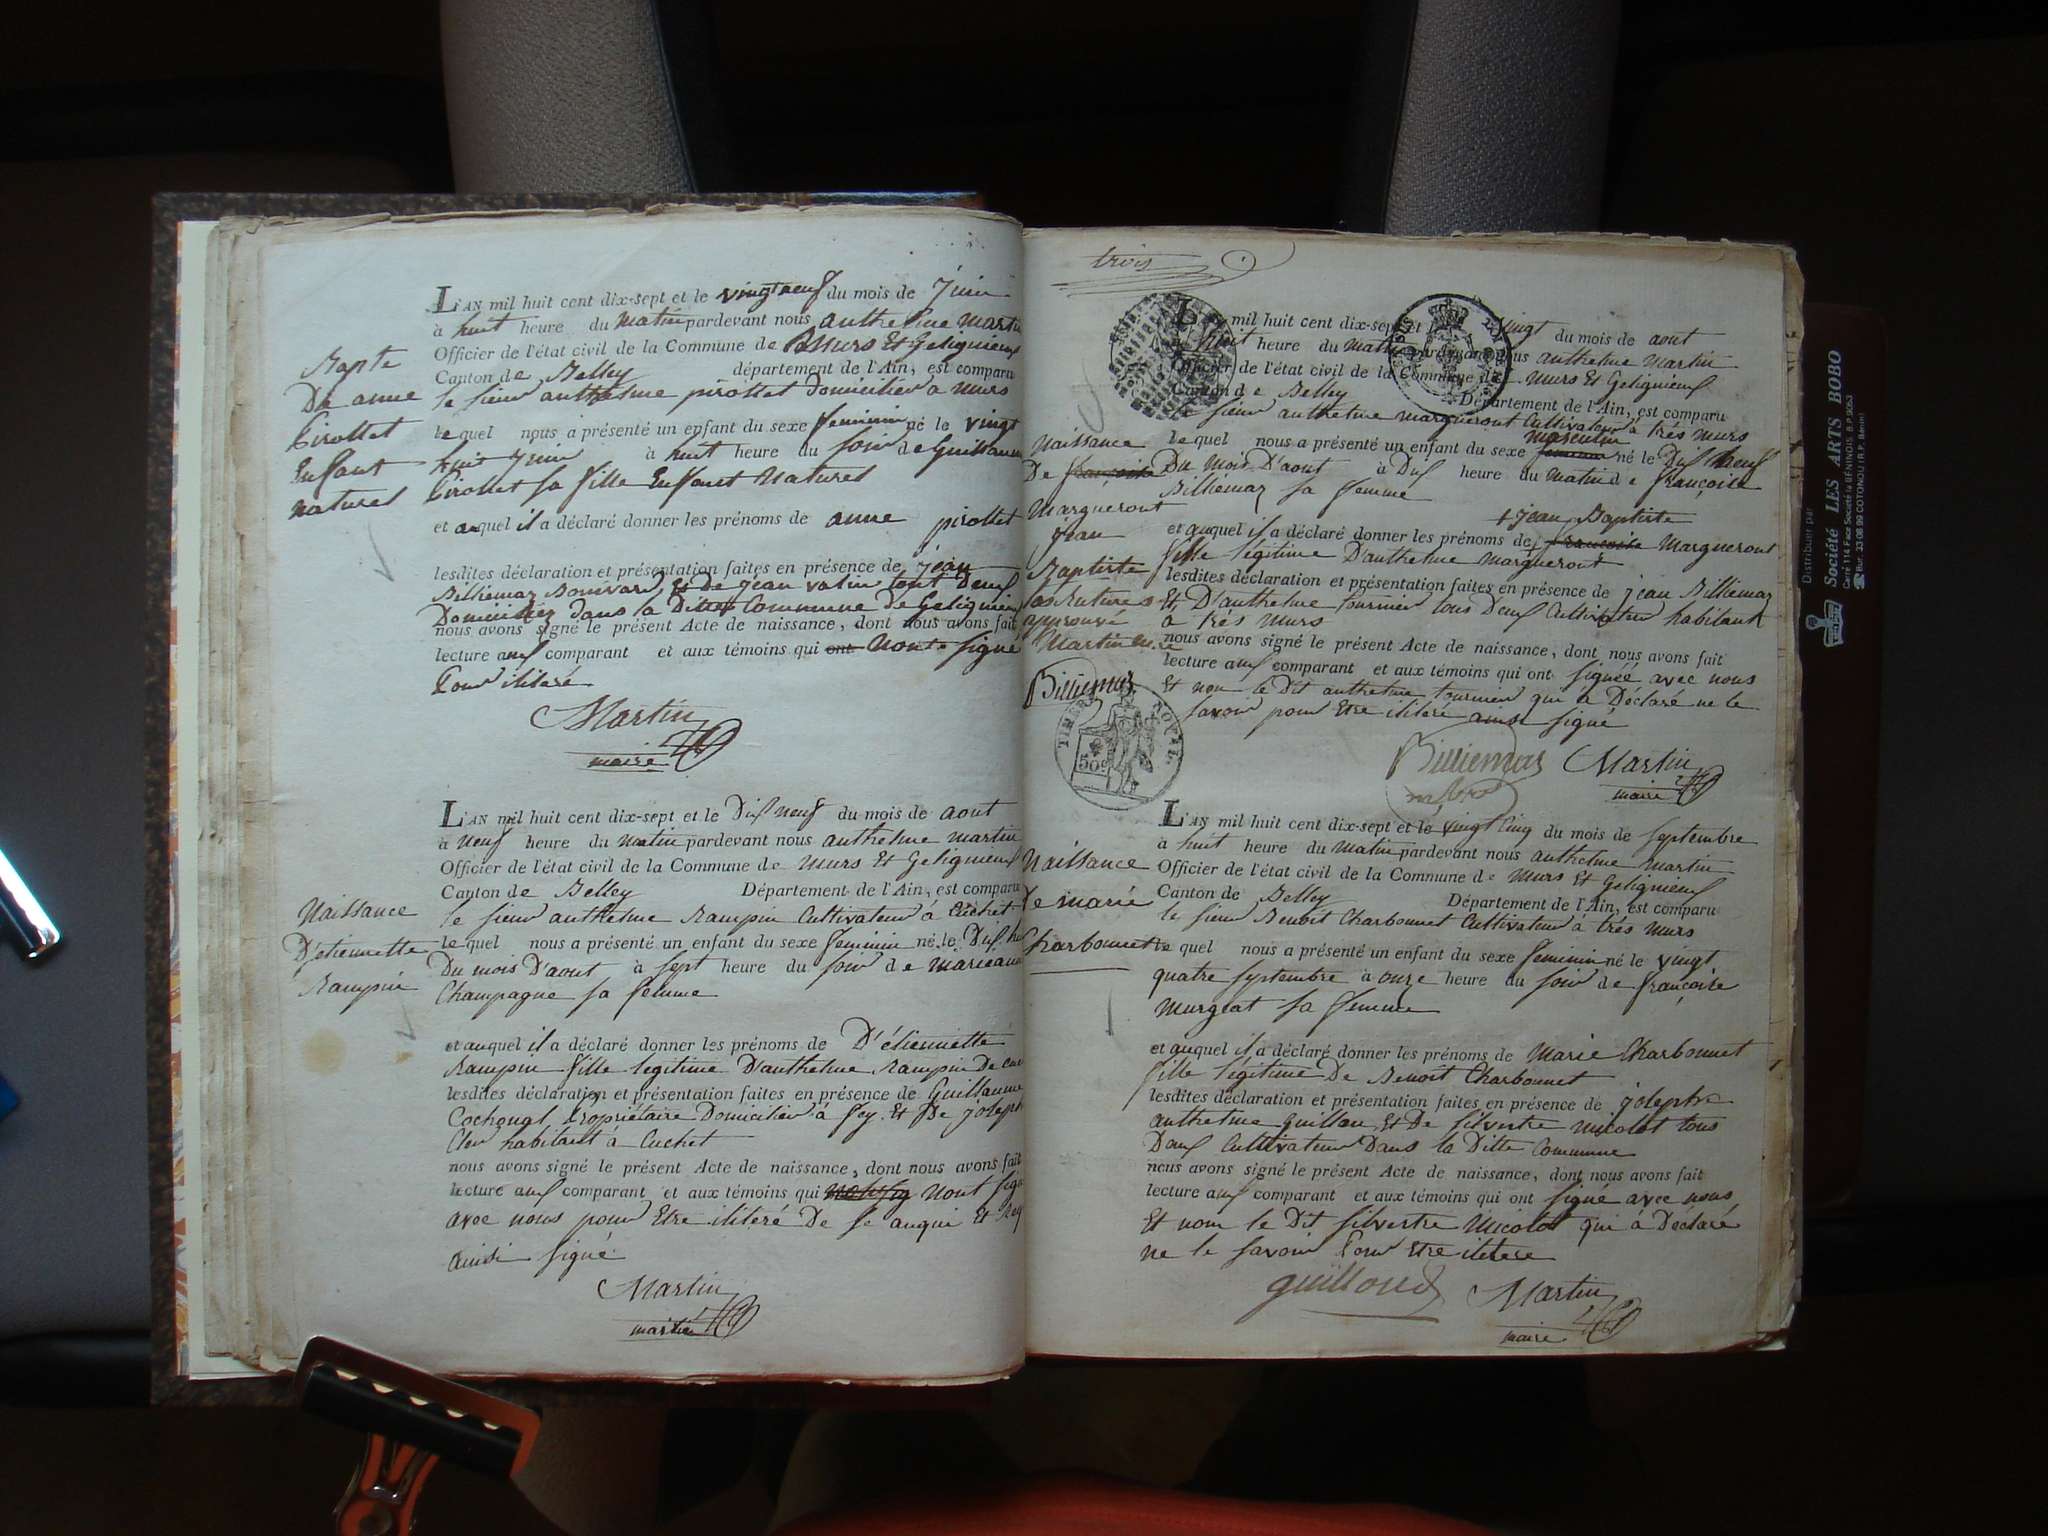 L'AN mil huit cent dix-sept et le vingtneuf du mois de Juin
à huit heure du Matin pardevant nous anthelme Martin
Officier de l'état civil de la Commune de Murs Et Gelignieux
Canton de Belley département de l'Ain, est comparu
le sieur anthelme pirollet domicilier a murs
lequel nous a présenté un enfant du sexe feminin né le vingt
huit Juin à huit heure du soir de Guillaume
Pirollet sa fille Enffant Naturel
et auquel il a déclaré donner les prénoms de anne pirollet
lesdites déclaration et présentation faites en présence de jean
Billiemaz Bonivard, Et de Jean vatin tout deux
Domiciliez dans la Ditte Commune de Gelignieux
nous avons signé le présent Acte de naissance, dont nous avons fait
lecture aux comparant et aux témoins qui ont Nonte signé
Pour ititeré
Martin
maire
Bapte
De anne
Pirollet
Enfant
naturel
L'AN mil huit cent dix-sept et le Dix neuf du mois de aout
à neuf heure du matin pardevant nous anthelme martin
Officier de l'état civil de la Commune de Murs Et Gelignieux
Canton de Belley Département de l'Ain, est comparu
le sieur anthelme Rampin Cultivateur à Cuchet
lequel nous a présenté un enfant du sexe feminin né le Dix hui
Du mois D'aout à sept heure du soir de marieanne
Champagne sa femme
et auquel il a déclaré donner les prénoms de D'étiennette
Rampin fille legitime D'anthelme Rampin De
lesdites déclaration et présentation faites en présence de Guillaume
Cochonat Propriétaire Domicilier à fey Et De joseph
habitant à Cuchet
nous avons signé le présent Acte de naissance, dont nous avons fait
lecture aux comparant et aux témoins qui Nont signé
avec nous pour Etre ititeré De ce anqui Et Req
ainsi signé
Martin
Naissance
D'étiennette
Rampin
trois
L'AN mil huit cent dix-sept et le vingt du mois de aout
à huit heure du matin pardevant nous anthelme Martin
Officier de l'état civil de la Commune de Murs Et Gelignieux
Canton de Belley Département de l'Ain, est comparu
le sieur anthelme margueront Cultivateur à très murs
lequel nous a présenté un enfant du sexe feminin masculin né le Dix Neuf
Du Mois D'aout à Dix heure du matin de françoise
Billiemaz sa femme
+ jean Baptiste
et auquel il a déclaré donner les prénoms de + francoise Margueront
fille légitime D'anthelme margueront
lesdites déclaration et présentation faites en présence de jean Billiemaz
Et D'anthelme tournier tous Deux Cultivateur habitant
à très murs
nous avons signé le présent Acte de naissance, dont nous avons fait
lecture aux comparant et aux témoins qui ont signéé avec nous
Et non le Dit anthelme tournier qui a Déclaré ne le
savoir pour Etre ititeré ainsi signé
Billiemaz Martin
maire
Naissance
De françoise
Margueront
Jean
Baptiste
approuvé
Martin
Billiemaz
TIMBRE ROYAL
50c
L'AN mil huit cent dix-sept et le vingt cinq du mois de septembre
à huit heure du matin pardevant nous anthelme martin
Officier de l'état civil de la Commune de Murs Et Gelignieux
Canton de Belley Département de l'Ain, est comparu
le sieur Benoit Charbonnet Cultivateur à très murs
lequel nous a présenté un enfant du sexe feminin né le vingt
quatre septembre à onze heure du soir de françoise
Murgeat sa femme
et auquel il a déclaré donner les prénoms de Marie Charbonnet
fille légitime De Benoit Charbonnet
lesdites déclaration et présentation faites en présence de josephe
anthelme Guillou Et De silvestre micolot tous
Deux Cultivateur Dans la Ditte Commune
nous avons signé le présent Acte de naissance, dont nous avons fait
lecture aux comparant et aux témoins qui ont signé avec nous
Et nom le Dit silvestre Micolot qui à Déclaré
ne le savoir Pour Etre ititere
guilloud Martin
maire
Naissance
De marie
Charbonnet
Distribuer par
Société LES ARTS BOBO
Carré 114 Face Société la BENINOIS. B.P. 9053
Bur. 33 08 99 COTONOU (R.P. Bénin)